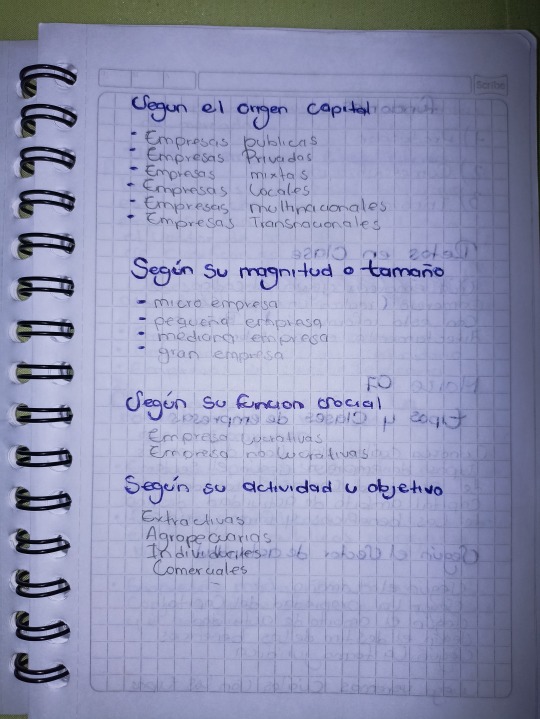 Scribe
Segun el origen capital
- Empresas publicas
- Empresas Privadas
- Empresas mixtas
- Empresas Locales
- Empresas multinacionales
- Empresas Transnacionales
Según su magnitud o tamaño
- micro empresa
- pequeña empresa
- mediana empresa
- gran empresa
Según su funcion social
Empresa Lucrativas
Empresa no Lucrativas
Según su actividad u objetivo
Extractivas
Agropecuarias
Comerciales